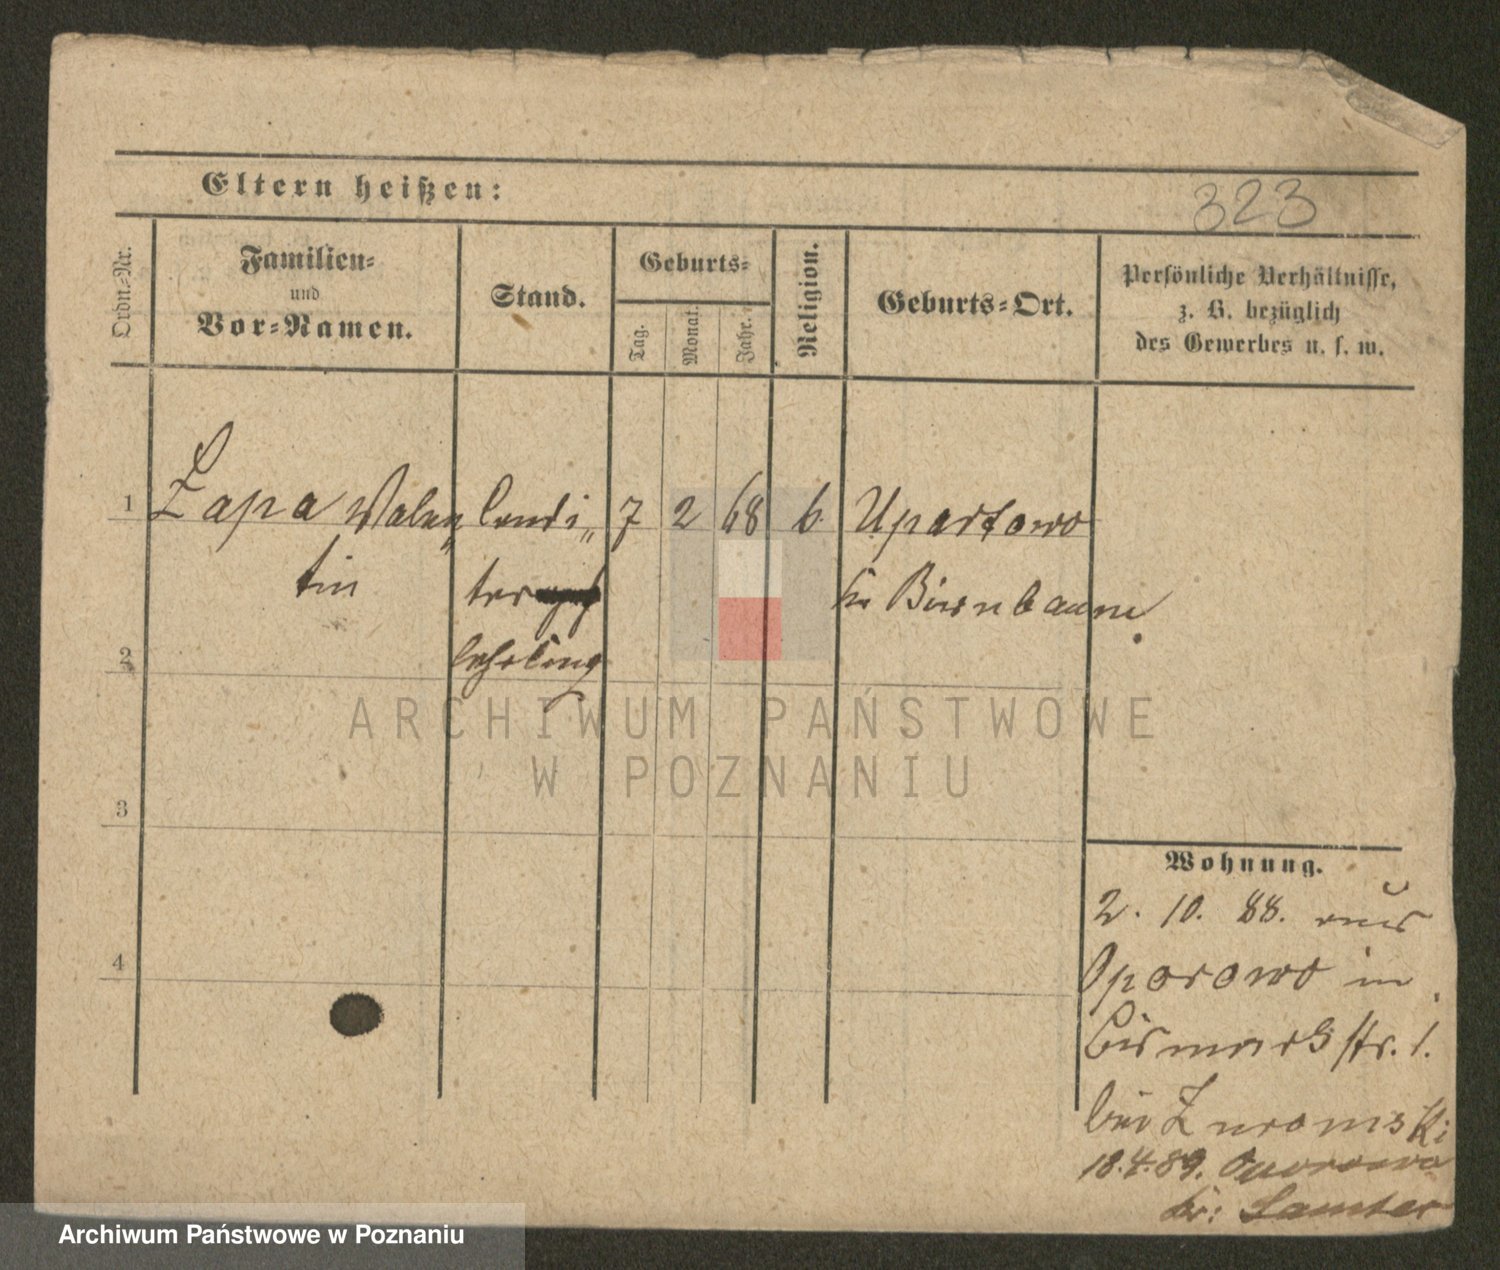 Eltern heißen:
323
Ordn.-Nr.
Familien-
und
Vor-Namen.
Stand.
Geburts-
Tag.
Monat.
Jahr.
Religion.
Geburts-Ort.
Persönliche Verhältnisse,
z. B. bezüglich
des Gewerbes u. s. w.
1 Zapa Valen„ Condi„ 7 2 68 k. Upartowo
tin
ter
Kr Birnbaum.
2
lehrling
ARCHIWUM PAŃSTWOWE
W POZNANIU
3
Wohnung.
2. 10. 88. aus
4
Oporowo in
Bismarkstr. 1.
bei Zuromski
18.4.89. Oporowo
Kr: Samter
Archiwum Państwowe w Poznaniu